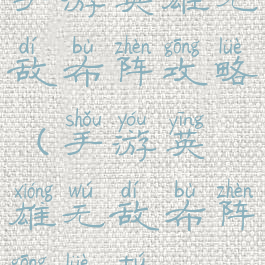 手游英雄无
dí bù zhèn gōng lüè
敌布阵攻略
shǒu yóu yīng
（手游英
xióng wú dí bù zhèn
雄无敌布阵
gōng lüè tú